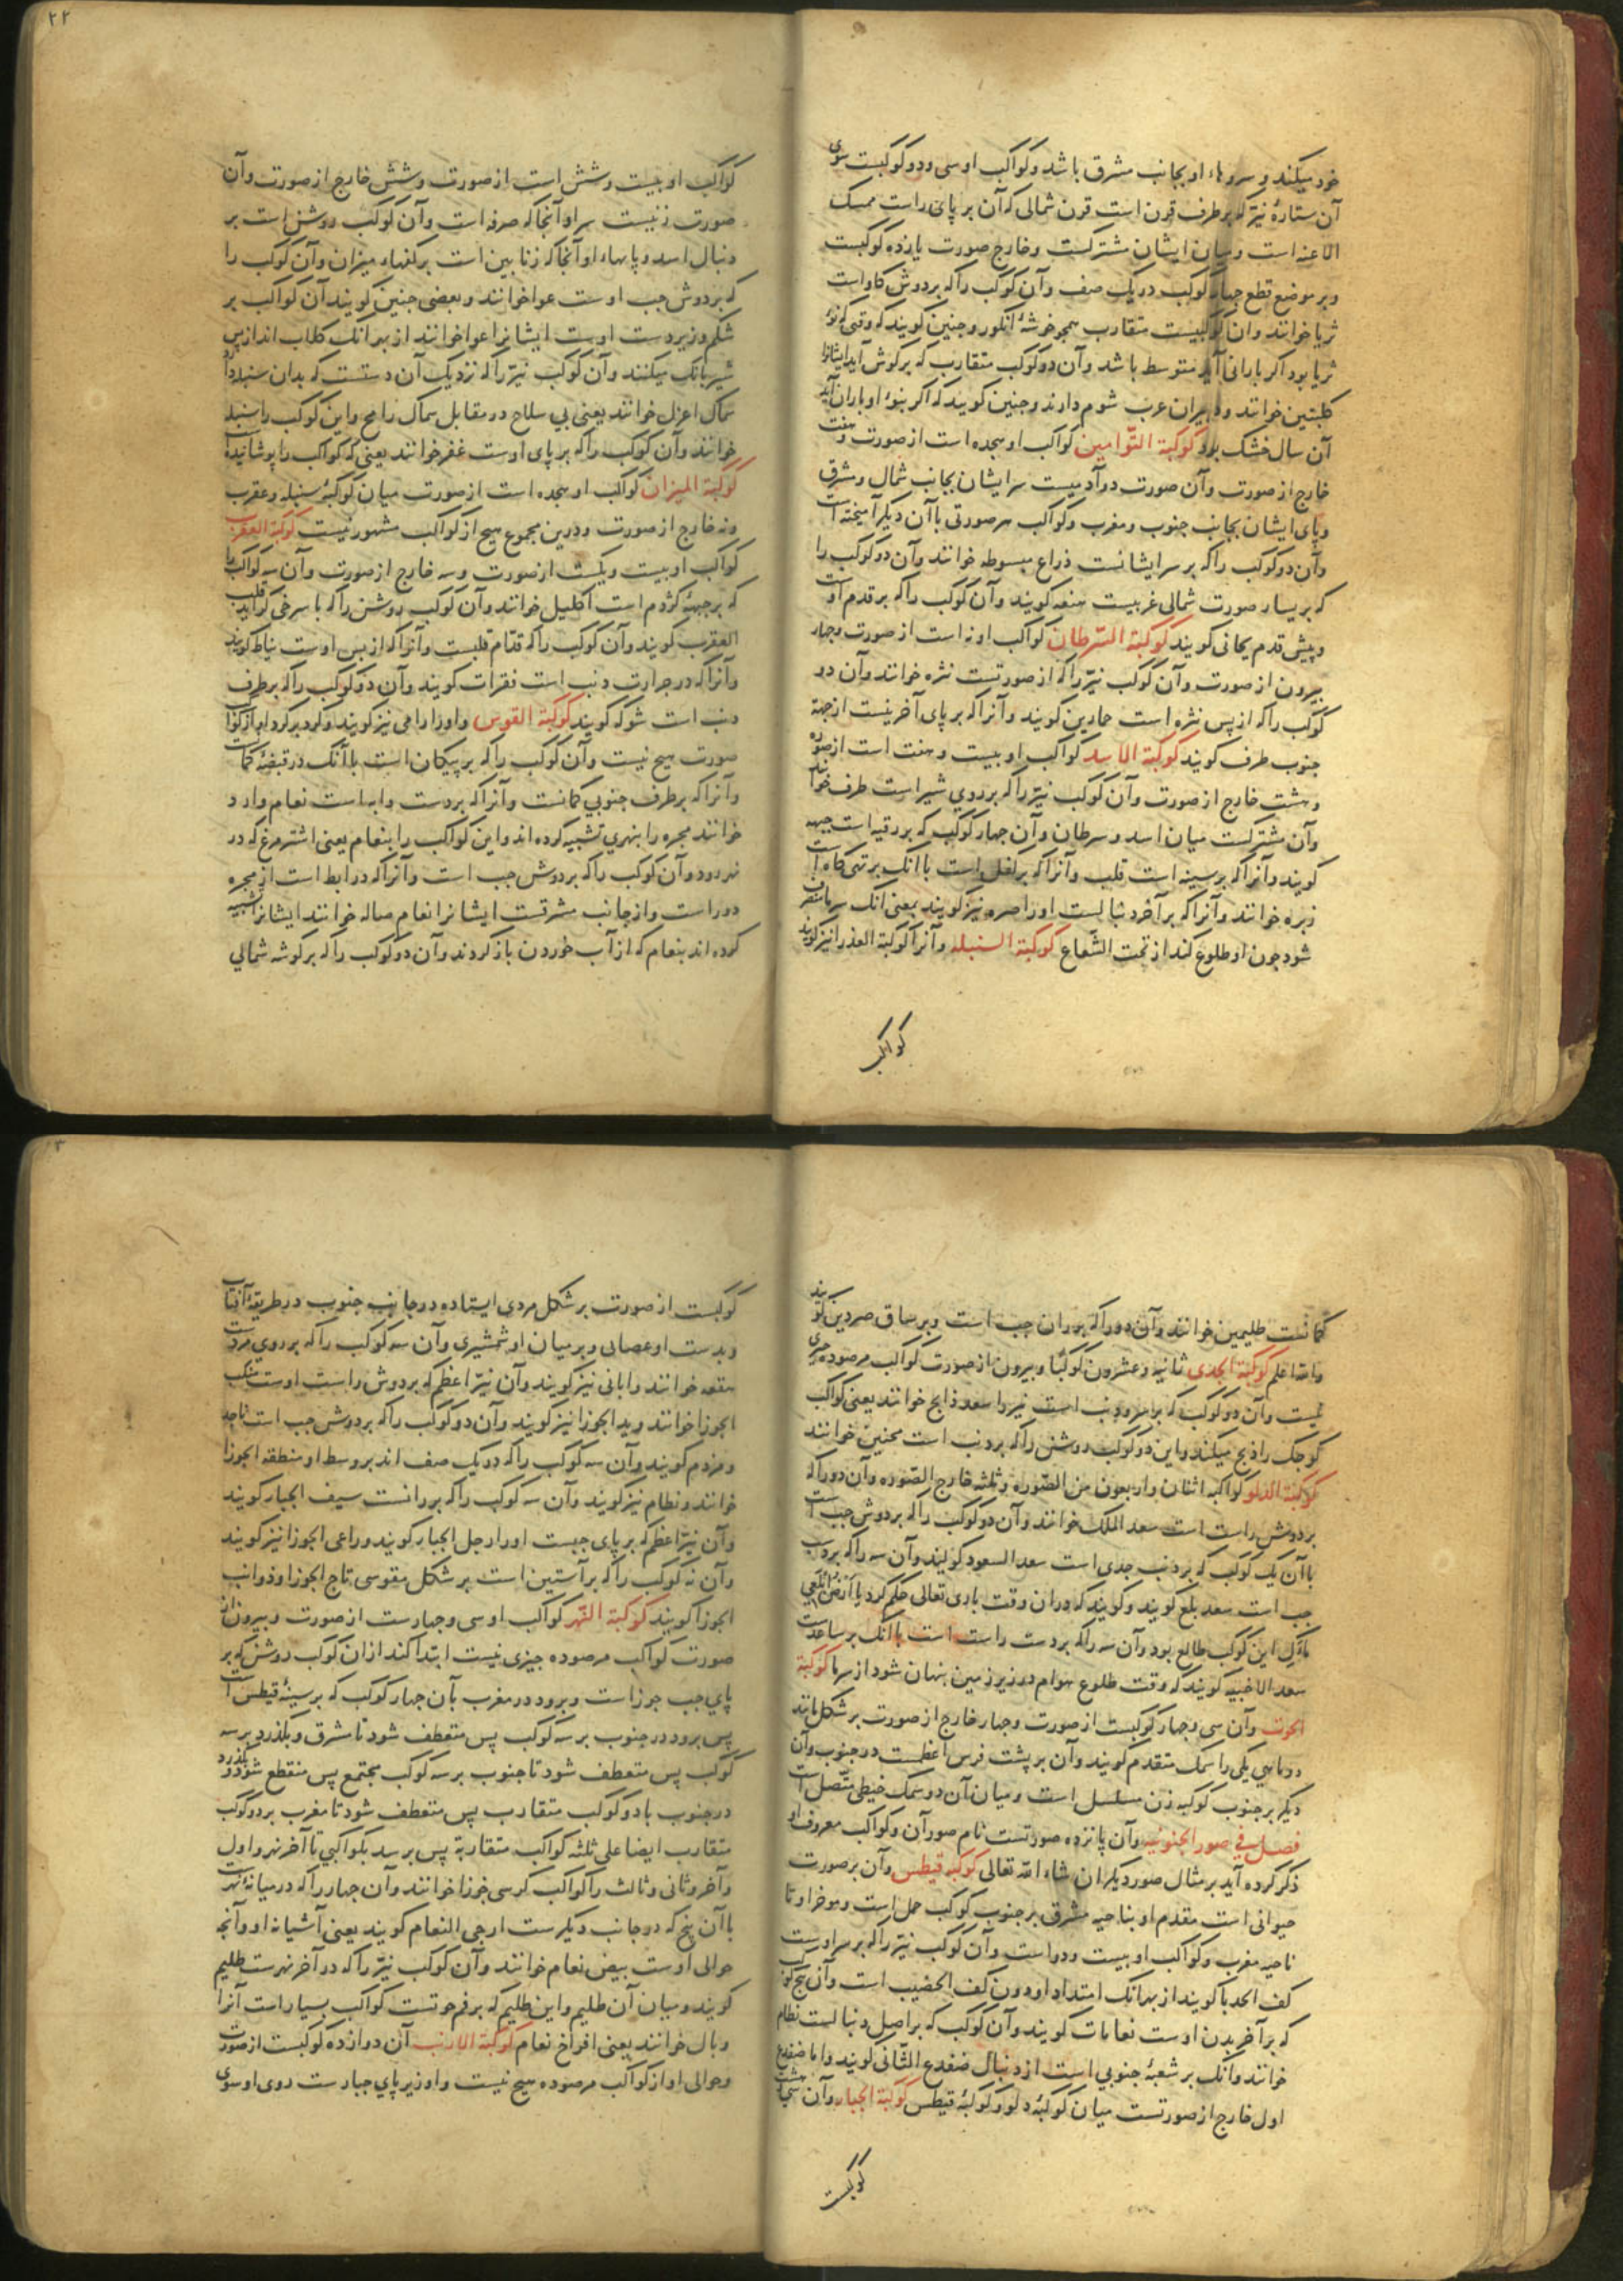 خود میکند و سروهاء او بجانب مشرق باشد و کواکب او سی و دو کوکبست سوی
آن ستارهٔ نیّر که بر طرف قرن است قرن شمالی که آن بر پای راست ممسک
الاعنه است و میان ایشان مشترکست و خارج صورت یازده کوکبست
و بر موضع قطع چهار کوکب در یک صف و آن کوکب را که بر دوش کاو است
ثریا خوانند و آن کوکبیست متقارب همچو خوشهٔ انکور و چنین کویند که وقتی که نوء
ثریا بود اکر بارانی آید متوسط باشد و آن دو کوکب متقارب که بر کوش آید ایشانرا
کلبتین خوانند و دبران عرب شوم دارند و چنین کویند که اکر بنوء او باران آید
آن سال خشک بود کوکبة التّوامین کواکب او هجده است از صورت و هفت
خارج از صورت و آن صورت دو آدمیست سر ایشان بجانب شمال و مشرق
و پای ایشان بجانب جنوب و مغرب و کواکب هر صورتی با آن دیکر آمیخته است
و آن دو کوکب را که بر سر ایشانست ذراع مبسوطه خوانند و آن دو کوکب را
که بر یسار صورت شمالی غربیست هنعه کویند و آن کوکب را که بر قدم اوست
و پیش قدم یحاتی کویند کوکبة السّرطان کواکب او نه است از صورت و چهار
بیرون از صورت و آن کوکب نیّر را که از صورتست نثره خوانند و آن دو
کوکب را که از پس نثره است حمارین کویند و آنرا که بر پای آخرینست از جهة
جنوب طرف کویند کوکبة الاسد کواکب او بیست و هفت است از صوره
و هشت خارج از صورت و آن کوکب نیّر را که بر روی شیر است طرف خوانند
و آن مشترکست میان اسد و سرطان و آن چهار کوکب که بر رقبه است جبهه
کویند و آنرا که بر سینه است قلب و آنرا که بر کفل است با آنک بر تهی کاه است
زبره خوانند و آنرا که بر آخر دنبالست او را صرفه نیز کویند بمعنی آنک سرما منصرف
شود چون او طلوع کند از تحت الشّعاع کوکبة السنبله و آنرا کوکبة العذرا نیز کویند
کواکب
۲۲
کواکب او بیست و شش است از صورت و شش خارج از صورت و آن
صورت زنیست سر او آنجا که صرفه است و آن کوکب روشن است بر
دنبال اسد و پایهاء او آنجا که زنابین است بر کفهاء میزان و آن کوکب را
که بر دوش چپ اوست عوا خوانند و بعضی چنین کویند آن کواکب بر
شکم و زیر دست اوست ایشانرا عوا خوانند از بهر آنک کلاب اند از پس
شیر بانک میکنند و آن کوکب نیّر را که نزدیک آن دستست که بدان سنبله دارد
سماک اعزل خوانند یعنی بی سلاح در مقابل سماک رامح و این کوکب را سنبله
خوانند و آن کوکب را که بر پای اوست غفر خوانند یعنی که کواکب را پوشانیده است
کوکبة المیزان کواکب او هجده است از صورت میان کوکبهٔ سنبله و عقرب
و نه خارج از صورت و درین مجموع هیچ از کواکب مشهور نیست کوکبة العقرب
کواکب او بیست و یکست از صورت و سه خارج از صورت و آن سه کواکب را
که بر جبههٔ کژدم است اکلیل خوانند و آن کوکب روشن را که با سرخی کراید قلب
العقرب کویند و آن کوکب را که قدّام قلبست و آنرا که از پس اوست نیاط کویند
و آنرا که در جرارت ذنب است فقرات کویند و آن دو کوکب را که بر طرف
ذنب است شوله کویند کوکبة القوس و او را رامی نیز کویند و کرد بر کرد او از کواکب
صورت هیچ نیست و آن کوکب را که بر پیکان است با آنک در قبضهٔ کمانست
و آنرا که بر طرف جنوبی کمانست و آنرا که بر دست دابه است نعام وارد
خوانند مجره را بنهری تشبیه کرده اند و این کواکب را بنعام یعنی اشتر مرغ که در
نهر رود و آن کوکب را که بر دوش چپ است و آنرا که در ابط است از مجره
دور است و از جانب مشرقست ایشانرا نعام صاله خوانند ایشانرا تشبیه
کرده اند بنعام که از آب خوردن باز کردند و آن دو کوکب را که بر کوشه شمالی
کمانست ظلیمین خوانند و آن دو را که بر ران چپ است و بر ساق صردین کویند
والله اعلم کوکبة الجدی ثمانیه و عشرون کوکبا و بیرون از صورت کواکب مرصوده چیزی
نیست و آن دو کوکب که بر سر و ذنب است نیز را سعد ذابح خوانند یعنی کواکب
کوچک را ذبح میکند و این دو کوکب روشن را که بر ذنب است محنین خوانند
کوکبة الدلو کواکبه اثنان و اربعون من الصّوره و ثلثه خارج الصّوره و آن دو را که
بر دوش راست است سعد الملک خوانند و آن دو کوکب را که بر دوش چپ است
با آن یک کوکب که بر ذنب جدی است سعد السعود کویند و آن سه را که بر دست
چپ است سعد بلع کویند و کویند که در ان وقت باری تعالی حکم کرد یا ارض ابلعی
ماءک این کوکب طالع بود و آن سه را که بر دست راست است با آنک بر ساعد است
سعد الاخبیه کویند که وقت طلوع هوام در زیر زمین پنهان شود از سرما کوکبة
الحوت و آن سی و چهار کوکبست از صورت و چهار خارج از صورت بر شکل مانند
دو ماهی یکی را سمک متقدم کویند و آن بر پشت فرس اعظمست در جنوب و آن
دیکر بر جنوب کوکبه زن مسلسل است و میان آن دو سمک خیطی متّصل است
فصل فی صور الجنوبیه و آن پانزده صورتست نام صور آن و کواکب معروف او
ذکر کرده آید بر مثال صور دیکر ان شاء الله تعالی کوکبه قیطس و آن بر صورت
حیوانی است مقدم او بناحیه مشرق بر جنوب کوکب حمل است و موخر او تا
ناحیه مغرب و کواکب او بیست و دو است و آن کوکب نیّر را که بر سر اوست
کف الجذما کویند از بهر آنک امتداد او دون کف الخضیب است و آن پنج کوکب
که بر آخر بدن اوست نعامات کویند و آن کوکب که بر اصل دنبالست نظام
خوانند و آنک بر شعبهٔ جنوبی است از دنبال ضفدع الثّانی کویند و اما ضفدع
اول خارج از صورتست میان کوکبهٔ دلو و کوکبهٔ قیطس کوکبة الجبار و آن سی و هشت
کوکبست
کوکبست از صورت بر شکل مردی ایستاده در جانب جنوب در طریقهٔ آفتاب
و بدست او عصایی و بر میان او شمشیری و آن سه کوکب را که بر روی مردست
هقعه خوانند و اثافی نیز کویند و آن نیّر اعظم که بر دوش راست اوست منکب
الجوزا خوانند و ید الجوزا نیز کویند و آن دو کوکب را که بر دوش چپ است ناجد
و مرزم کویند و آن سه کوکب را که در یک صف اند بر وسط او منطقه الجوزا
خوانند و نظام نیز کویند و آن سه کوکب را که بر رانست سیف الجبار کویند
و آن نیّر اعظم که بر پای چپست او را رجل الجبار کویند و راعی الجوزا نیز کویند
و آن نه کوکب را که بر آستین است بر شکل مقوسی تاج الجوزا و ذوائب
الجوزا کویند کوکبة النّهر کواکب او سی و چهارست از صورت و بیرون از
صورت کواکب مرصوده چیزی نیست ابتدا کند از ان کوکب روشن که بر
پای چپ جوزاست و برود در مغرب بآن چهار کوکب که بر سینهٔ قیطس است
پس برود در جنوب بر سه کوکب پس متعطف شود تا مشرق و بکذرد بر سه
کوکب پس متعطف شود تا جنوب بر سه کوکب مجتمع پس منقطع شود و بکذرد
در جنوب با دو کوکب متقارب پس متعطف شود تا مغرب بر دو کوکب
متقارب ایضا علی ثلثه کواکب متقاربة پس برسد بکواکبی تا آخر نهر و اول
و آخر و ثانی و ثالث را کواکب کرسی جوزا خوانند و آن چهار را که در میانهٔ نهرست
با آن پنج که در جانب دیکرست ادحی النعام کویند یعنی آشیانه او و آنچه
حوالی اوست بیض نعام خوانند و آن کوکب نیّر را که در آخر نهرست ظلیم
کویند و میان آن ظلیم و این ظلیم که بر فم حوتست کواکب بسیار است آنرا
ریال خوانند یعنی افراخ نعام کوکبة الارنب آن دوازده کوکبست از صورت
و حوالی او از کواکب مرصوده هیچ نیست و او زیر پای جبارست روی او سوی